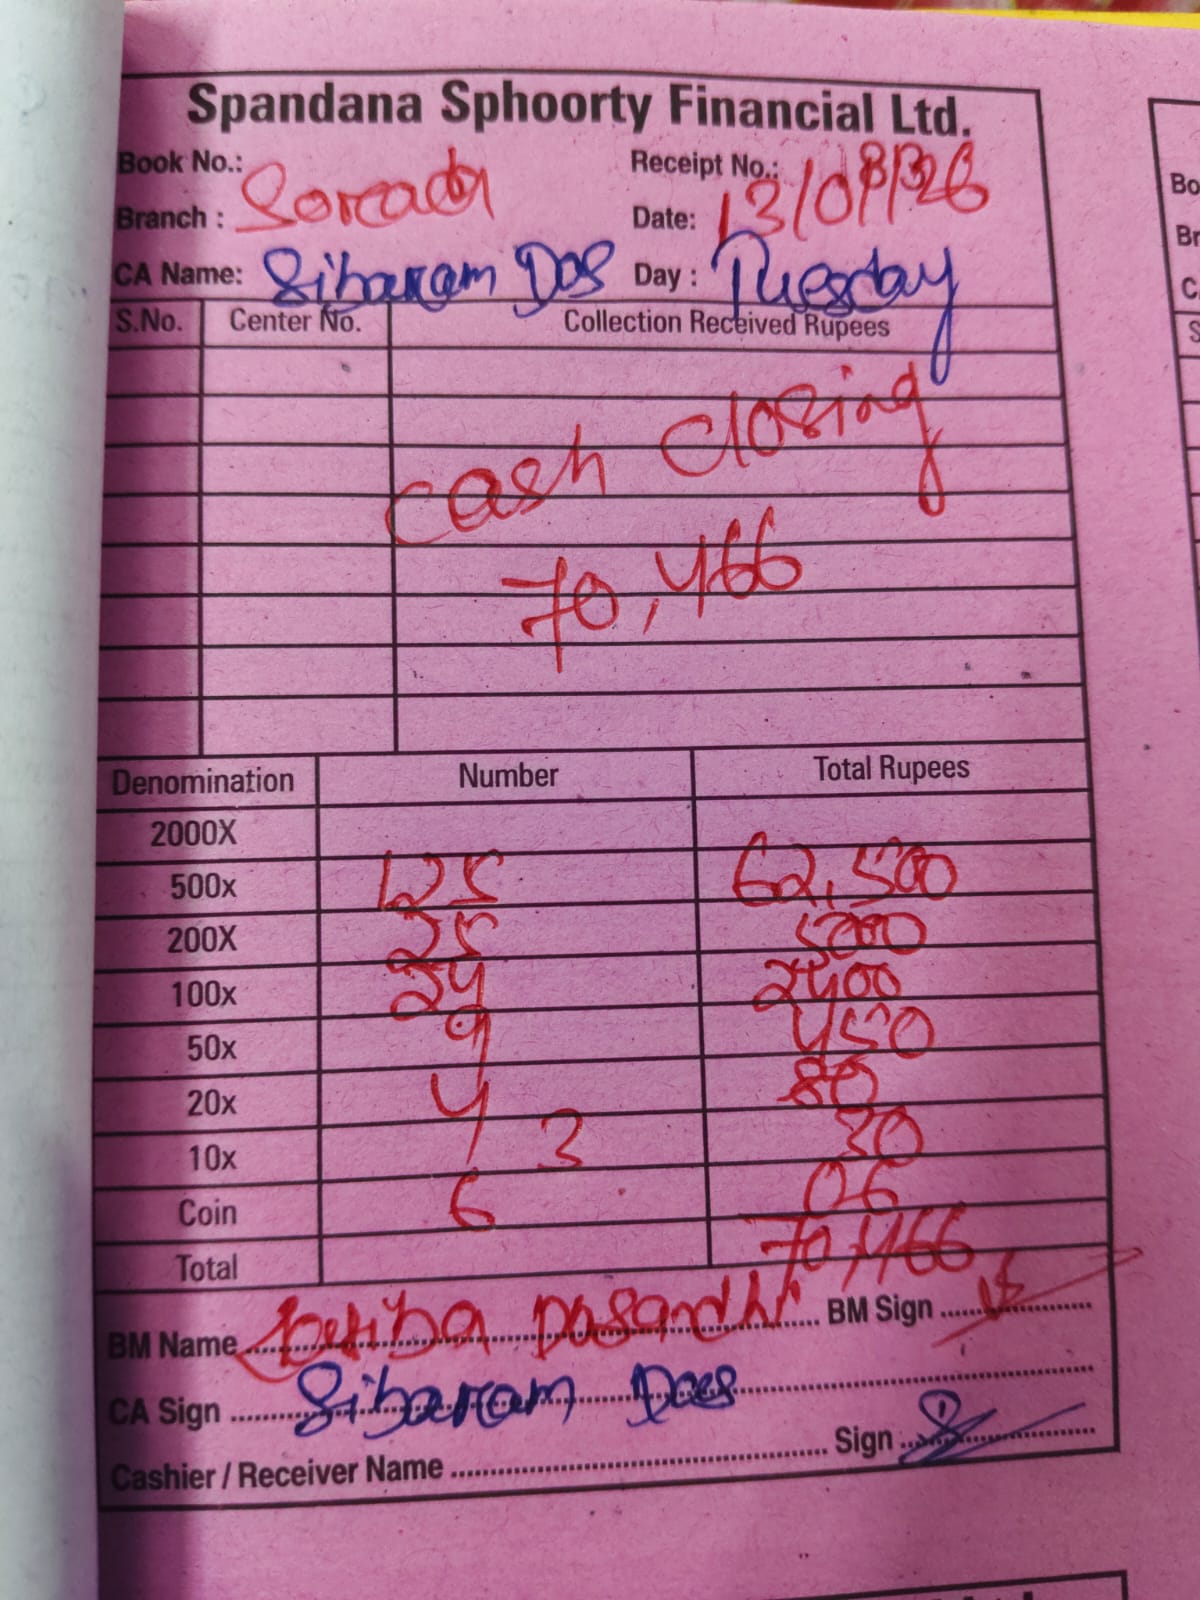 Spandana Sphoorty Financial Ltd.
Book No.: Receipt No.:
Branch : Sorada Date: 13/01/26
CA Name: Sibaram Das Day : Tuesday
S.No. Center No. Collection Received Rupees
cash closing
70,466
Denomination Number Total Rupees
2000X
500x 125 62,500
200X 25 5000
100x 24 2400
50x 9 450
20x 4 80
10x 3 30
Coin 6 06
Total 70,466
BM Name BM Sign
CA Sign Sibaram Das
Sign
Cashier / Receiver Name
Bo
Br
C
S